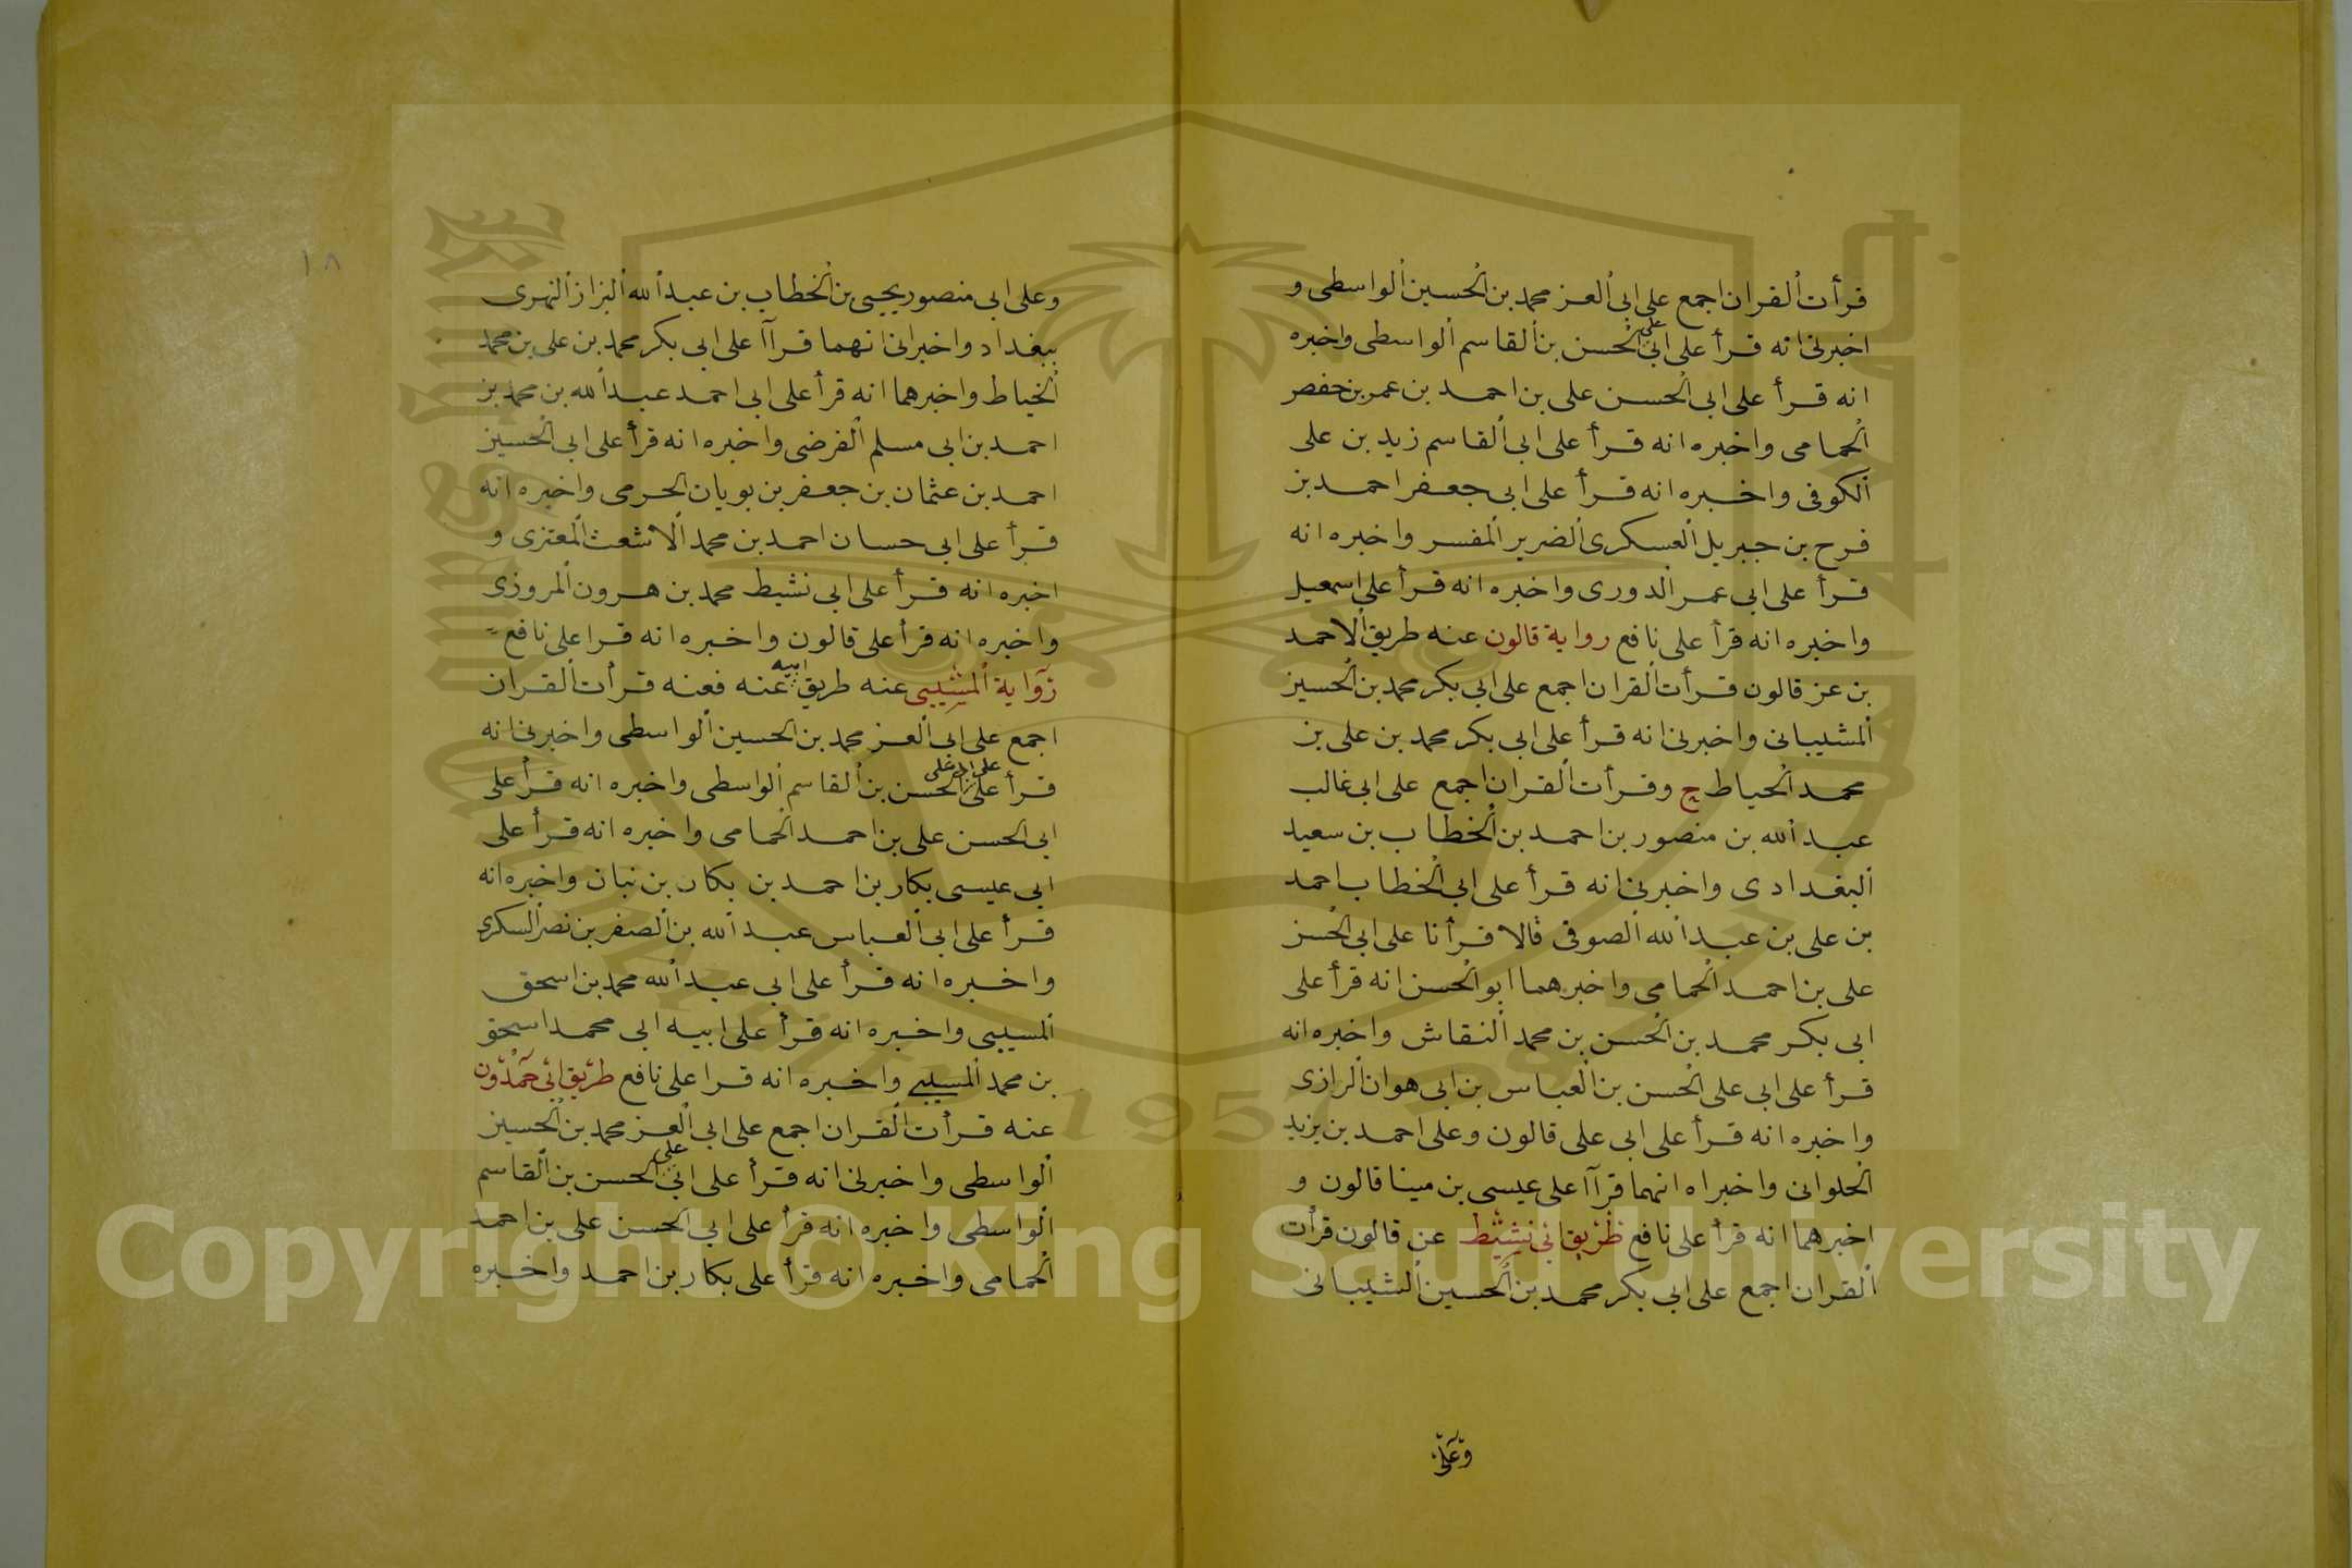 قرأت ألقران اجمع على ابى ألعز محمد بن ألحسين ألواسطى و
اخبرنى انه قرأ على ابى على ألحسن بن ألقاسم ألواسطى واخبره
انه قرأ على ابى ألحسن على بن احمد بن عمر بن حفص
ألحمامى واخبره انه قرأ على ابى ألقاسم زيد بن على
ألكوفى واخبره انه قرأ على ابى جعفر احمد بن
فرح بن جبريل ألعسكرى ألضرير ألمفسر واخبره انه
قرأ على ابى عمر ألدورى واخبره انه قرأ على اسمعيل
واخبره انه قرأ على نافع رواية قالون عنه طريق ألاحمد
بن عن قالون قرأت ألقران اجمع على ابى بكر محمد بن ألحسين
ألمشيبانى واخبرنى انه قرأ على ابى بكر محمد بن على بن
محمد ألخياط ح وقرأت ألقران اجمع على ابى غالب
عبد ألله بن منصور بن احمد بن ألخطاب بن سعيد
ألبغدادى واخبرنى انه قرأ على ابى ألخطاب احمد
بن على بن عبد ألله ألصوفى قالا قرأنا على ابى ألحسن
على بن احمد ألحمامى واخبرهما ابو ألحسن انه قرأ على
ابى بكر محمد بن ألحسن بن محمد ألنقاش واخبره انه
قرأ على ابى على ألحسن بن ألعباس بن ابى هوان ألرازى
واخبره انه قرأ على ابى على قالون وعلى احمد بن يزيد
ألحلوانى واخبراه انهما قرآا على عيسى بن مينا قالون و
اخبرهما انه قرأ على نافع طريق ابى نشيط عن قالون قرأت
ألقران اجمع على ابى بكر محمد بن ألحسين ألشيبانى
وعلى
١٨
وعلى ابى منصور يحيى بن ألخطاب بن عبد ألله ألبزاز ألنهرى
ببغداد واخبرانى انهما قرآا على ابى بكر محمد بن على بن محمد
ألخياط واخبرهما انه قرأ على ابى احمد عبد ألله بن محمد بن
احمد بن ابى مسلم ألفرضى واخبره انه قرأ على ابى ألحسين
احمد بن عثمان بن جعفر بن بويان ألحرمى واخبره انه
قرأ على ابى حسان احمد بن محمد ألاشعث ألمعتزى و
اخبره انه قرأ على ابى نشيط محمد بن هرون ألمروزى
واخبره انه قرأ على قالون واخبره انه قرا على نافع
رواية ألمسيبى عنه طريق ابيه عنه فعنه قرأت ألقران
اجمع على ابى ألعز محمد بن ألحسين ألواسطى واخبرنى انه
قرأ على ابى على ألحسن بن ألقاسم ألواسطى واخبره انه قرأ على
ابى ألحسن على بن احمد ألحمامى واخبره انه قرأ على
ابى عيسى بكار بن احمد بن بكار بن نبان واخبره انه
قرأ على ابى ألعباس عبد ألله بن ألصفر بن نصر ألسكرى
واخبره انه قرأ على ابى عبد ألله محمد بن اسحق
ألمسيبى واخبره انه قرأ على ابيه ابى محمد اسحق
بن محمد ألمسيبى واخبره انه قرا على نافع طريق ابى حمدون
عنه قرأت ألقران اجمع على ابى ألعز محمد بن ألحسين
ألواسطى واخبرنى انه قرأ على ابى على ألحسن بن ألقاسم
ألواسطى واخبره انه قرأ على ابى ألحسن على بن احمد
ألحمامى واخبره انه قرأ على بكار بن احمد واخبره
Copyright © King Saud University
1957